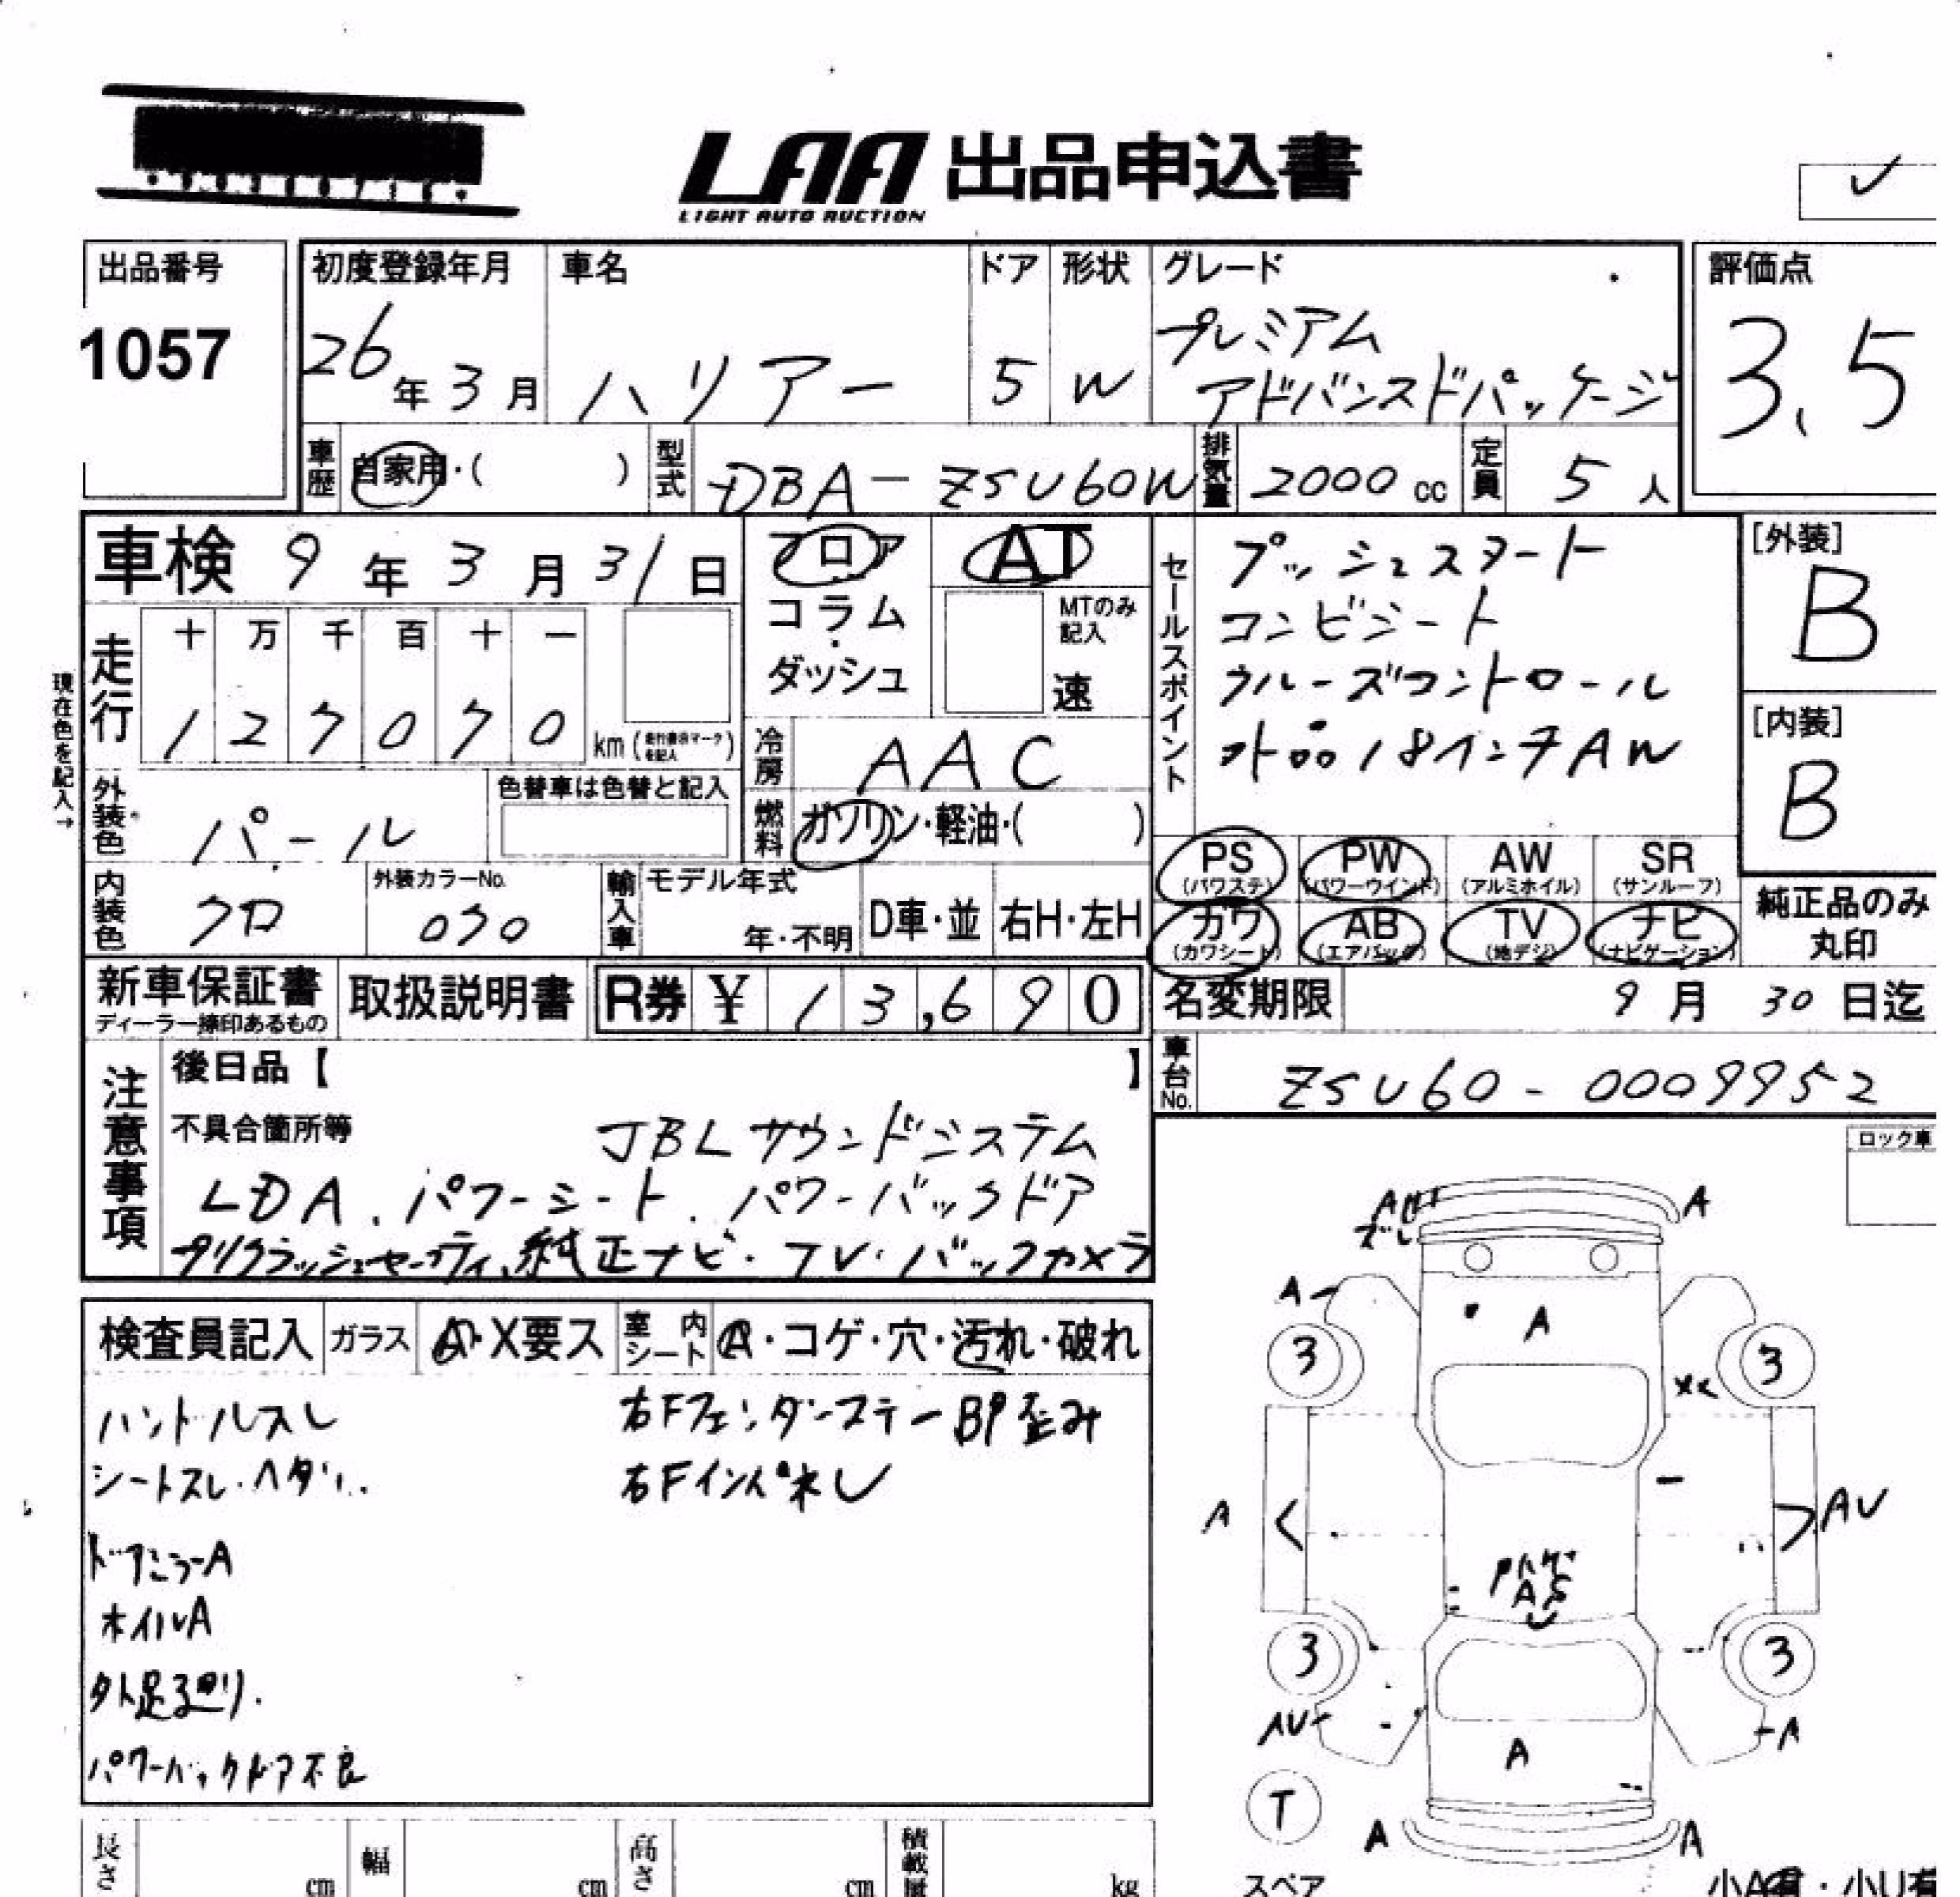 LAA 出品申込書
LIGHT AUTO AUCTION
出品番号
1057
初度登録年月
26年3月
車名
ハリアー
ドア
5
形状
W
グレード
プレミアム
アドバンスドパッケージ
評価点
3.5
車歴 自家用・( )
型式 DBA-ZSU60W
排気量 2000 cc
定員 5人
車検 9年3月31日
フロア
コラム
ダッシュ
AT
MTのみ記入
速
セールスポイント
プッシュスタート
コンビシート
クルーズコントロール
外品18インチAW
[外装]
B
[内装]
B
現在色を記入→
走行
十 万 千 百 十 一
1 2 7 0 7 0 km
冷房 AAC
外装色 パール
色替車は色替と記入
燃料 ガソリン・軽油・( )
PS (パワステ)
PW (パワーウインド)
AW (アルミホイル)
SR (サンルーフ)
カワ (カワシート)
AB (エアバッグ)
TV (地デジ)
ナビ (ナビゲーション)
純正品のみ
丸印
内装色 クロ
外装カラーNo.
070
輸入車
モデル年式
年・不明
D車・並
右H・左H
新車保証書
ディーラー捺印あるもの
取扱説明書
R券 ¥ 13,690
名変期限 9月30日迄
車台No. ZSU60-0009952
注意事項
後日品【 】
不具合箇所等
JBLサウンドシステム
LDA.パワーシート.パワーバックドア
プリクラッシュセーフティ、純正ナビ・TV・バックカメラ
ロック車
検査員記入
ガラス A・X要ス
室内シート A・コゲ・穴・汚れ・破れ
ハンドルスレ
シートスレ・ヘタリ
ドアミラーA
ホイルA
外足廻り.
パワーバックドア不良
右FフェンダーステーBP歪み
右Fインパネレ
A
ズレ
A
A
A
3
3
XX
A
AU
A
U
3
3
AU
A
A
T
A
A
スペア
長さ cm
幅 cm
高さ cm
積載量 kg
小A有・小U有